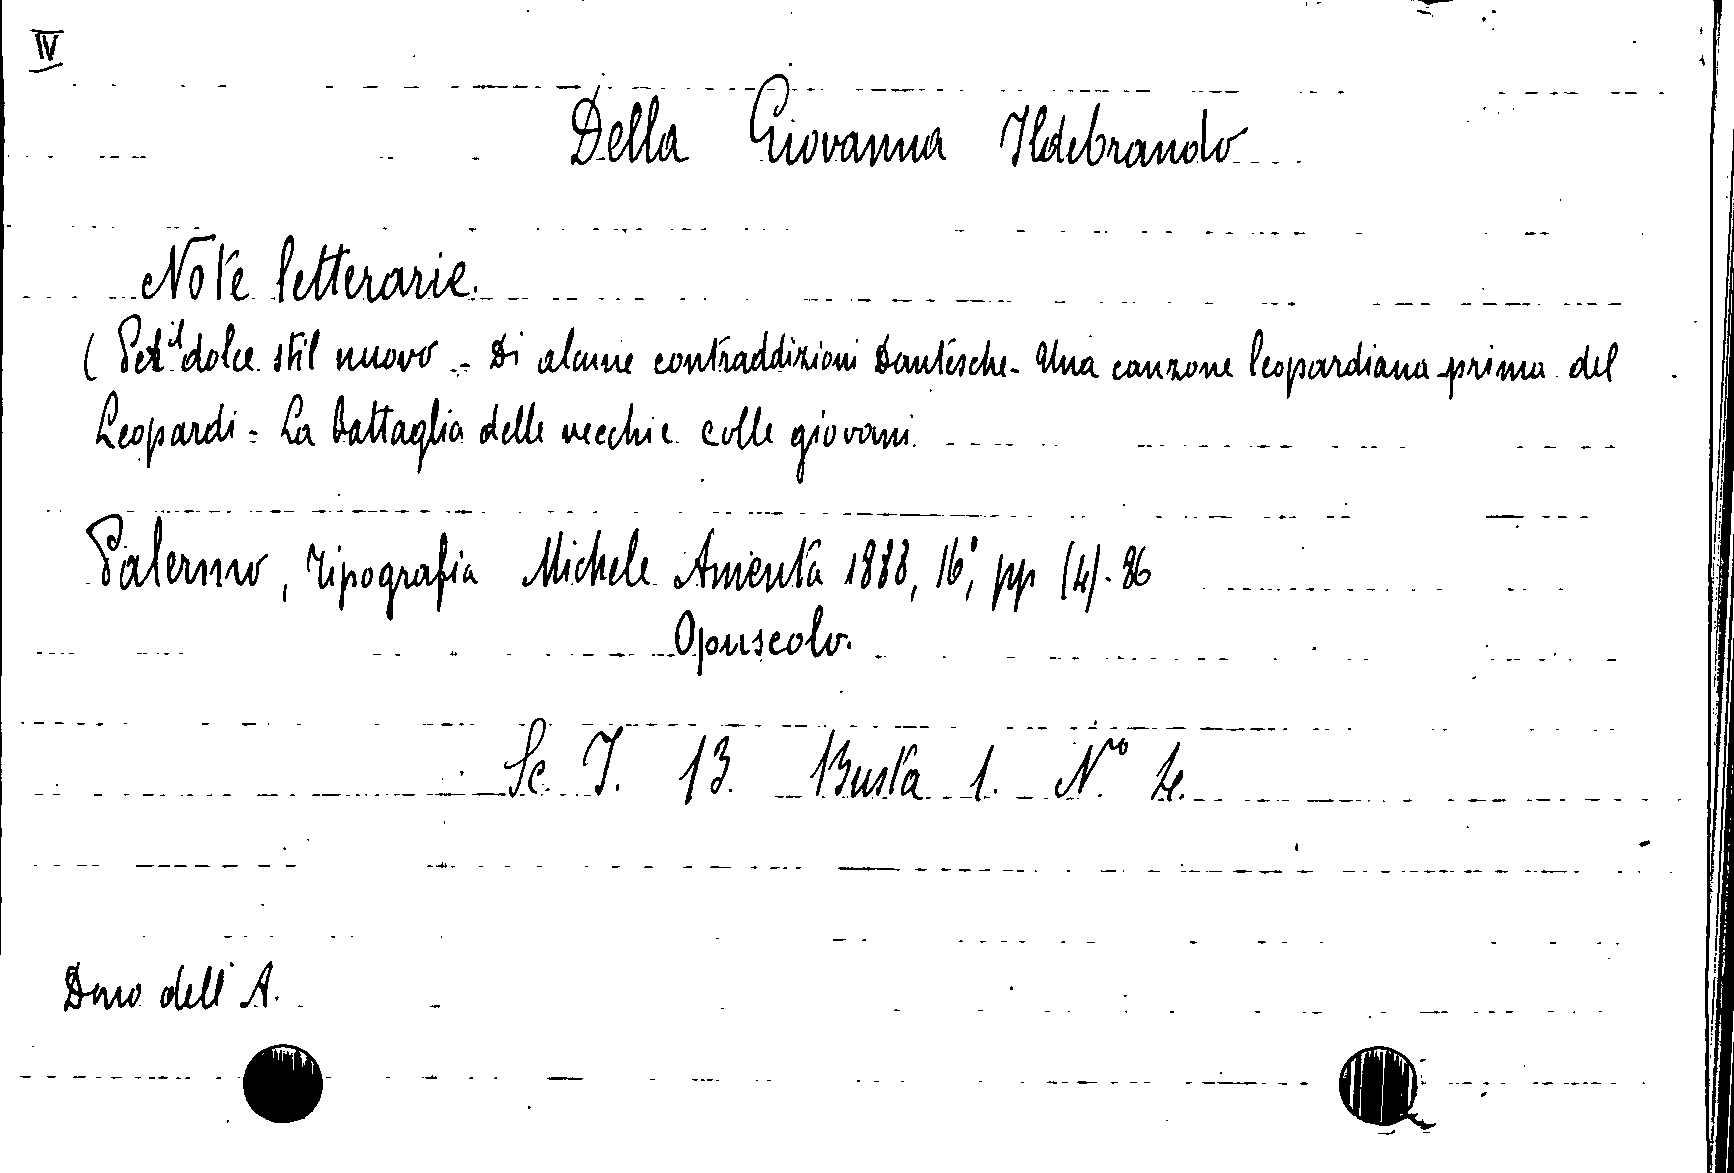 IV
Della Giovanna Ildebrando
Note letterarie.
( Pel il dolce stil nuovo - Di alcune contraddizioni Dantesche - Una canzone leopardiana prima del
Leopardi - La battaglia delle vecchie colle giovani.
Palermo, Tipografia Michele Amenta 1888, 16°, pp (4)-86
Opuscolo.
Sc. I. 13. Busta 1. N.ro 4.
Dono dell'A.